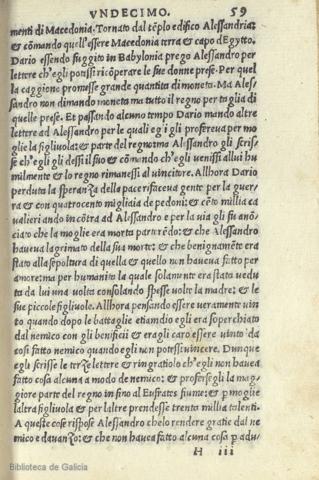 VNDECIMO. 59
menti di Macedonia. Tornato dal tẽplo edifico Alessandria:
& cõmando quell'essere Macedonia terra & capo d'Egytto.
Dario essendo fuggito in Babylonia prego Alessandro per
lettere ch'egli potissi ricõperare le sue donne prese. Per quel
la caggione promisse grande quantita di moneta. Ma Ales/
sandro non dimando moneta ma tutto il regno per taglia di
quelle prese. Et passando alcuno tempo Dario mando altre
lettere ad Alessandro per le quali egli gli profereva per mo
glie la figliuola: & parte del regno: ma Alessandro gli scris/
se ch'egli gli dessi il suo & cõmando ch'egli uenissi allui hu
milmente & lo regno rimanessi al uincitore. Allhora Dario
perduta la speranza della pace rifaceua gente per la guer/
ra & con quatrocento migliaia de pedoni: & cẽto millia ca
ualieri ando incõtra ad Alessandro e per la uia gli fu anõ/
ciato che la moglie era morta partorẽdo: & che Alessandro
haueua lagrimato della sua morte: & che benignamẽte era
stato alla sepoltura di quella & quello non haueua fatto per
amore: ma per humanita la quale solamente era stata uedu
ta da lui una uolta consolando spesse uolte la madre: & le
sue piccole figliuole. Allhora pensando essere ueramente uin
to quando dopo le battaglie etiamdio egli era soperchiato
dal nemico con gli benificii & eragli caro essere uinto da
cosi fatto nemico quando egli non potessi uincere. Dunque
egli scrisse le terze lettere & ringratiolo ch'egli non hauea
fatto cosa alcuna a modo de nemico: & proferse gli la mag/
giore parte del regno in fino al Eufrates fiume: & p moglie
laltra figliuola & per laltre prendesse trenta millia talenti.
A queste cose rispose Alessandro chelo rendere gratie dal ne
mico e dauanzo: & che non hauea fatto alcuna cosa p adu/
H iii
Biblioteca de Galicia